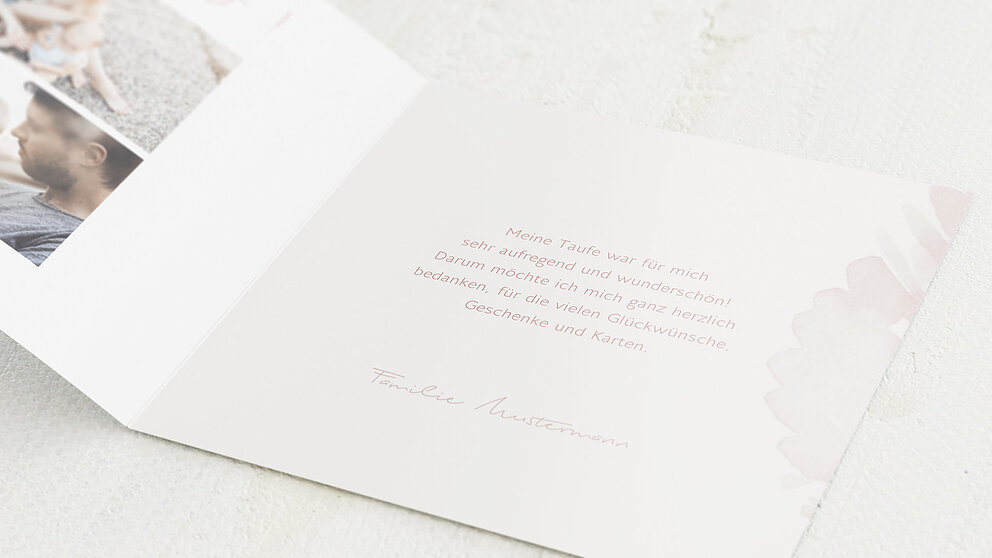 Meine Taufe war für mich
sehr aufregend und wunderschön!
Darum möchte ich mich ganz herzlich
bedanken, für die vielen Glückwünsche,
Geschenke und Karten.
Familie Mustermann